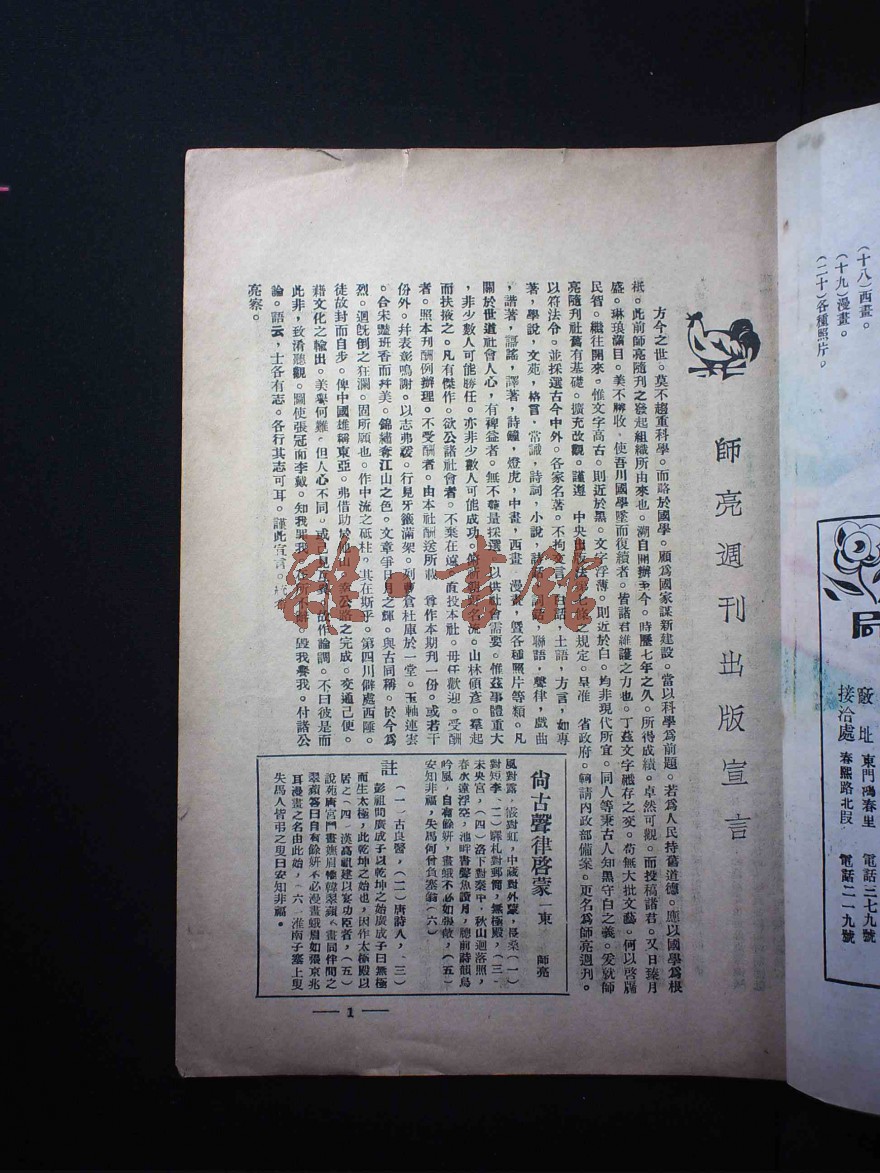 (十八)西畫。
(十九)漫畫。
(二十)各種照片。
接洽處 春熙路北段 電話二一九號
東門鴻春里 電話三七九號
師亮週刊出版宣言
方今之世。莫不趨重科學。而略於國學。顧為國家謀新建設。當以科學為前題。若為人民持舊道德。應以國學為根
柢。此前師亮隨刊之發起組織所由來也。溯自開辦至今。時歷七年之久。所得成績。卓然可觀。而投稿諸君。又日臻月
盛。琳琅滿目。美不勝收。使吾川國學墜而復續者。皆諸君維護之力也。丁茲文字禮存之變。苟無大批文藝。何以啓牖
民智。繼往開來。惟文字高古。則近於黑。文字浮薄。則近於白。均非現代所宜。同人等秉古人知黑守白之義。爰就師
亮隨刊社舊有基礎。擴充改觀。謹遵 中央出版法第七條之規定。呈准 省政府。轉請內政部備案。更名為師亮週刊。
以符法令。並採選古今中外。各家名著。不拘文言，白話，土語，方言，如專
著，學說，文苑，格言，常識，詩詞，小說，詩話，詞話，聯語，聲律，戲曲
，諧著，謠謠，譯著，詩鐘，燈虎，中畫，西畫，漫畫，暨各種照片等類。凡
關於世道社會人心，有裨益者。無不儘量採選。以供社會需要。惟茲事體重大
，非少數人可能勝任。亦非少數人可能成功。尚祈親好名流。山林碩彥。羣起
而扶掖之。凡有傑作。欲公諸社會者。不棄在遠。直投本社。毋任歡迎。受酬
者。照本刊酬例辦理。不受酬者。由本社酬送所載 尊作本期刊一份。或若干
份外。幷表彰鳴謝。以志弗諼。行見牙籤滿架。列曹倉杜庫於一堂。玉軸連雲
。合宋豔班香而幷美。錦繡奪江山之色。文章爭日月之輝。與古同稱。於今為
烈。迴旣倒之狂瀾。固所願也。作中流之砥柱。其在斯乎。第四川僻處西陲。
徒故封而自步。俾中國雄稱東亞。弗借助於他山。幸公路之完成。交通已便。
藉文化之輸出。美舉何難。但人心不同。或己見反異。故作論調。不曰彼是而
此非，致淆聽觀。圖使張冠而李戴。知我罪我。在所不辭。毀我譽我。付諸公
論。語云，士各有志。各行其志可耳。謹此宣言。
亮察。
尙古聲律啓蒙 一東 師亮
風對露，霰對虹，中藏對外蒙，長桑(一)
對短李，(二)驛札對郵筒，無極殿，(三)
未央宮，(四)洛下對秦中，秋山迴落照，
春水遠浮空，池畔書聲魚讀月，牕前詩韻鳥
吟風，自有餘妍，畫蛾不必如張敞，(五)
安知非福，失馬何曾負塞翁(六)
註 (一)古良醫，(二)唐詩人，(三)
彭祖問廣成子以乾坤之始廣成子曰無極
而生太極，此乾坤之始也，因作太極殿以
居之(四)漢高祖建以宴功臣者，(五)
說苑唐宮門畫嫵眉惟韓翠蘋不畫同伴問之
翠蘋答曰自有餘妍不必漫畫蛾眉如張京兆
耳漫畫之名由此始，(六)淮南子塞上叟
失馬人皆弔之叟曰安知非福。
— 1 —
雒·書館